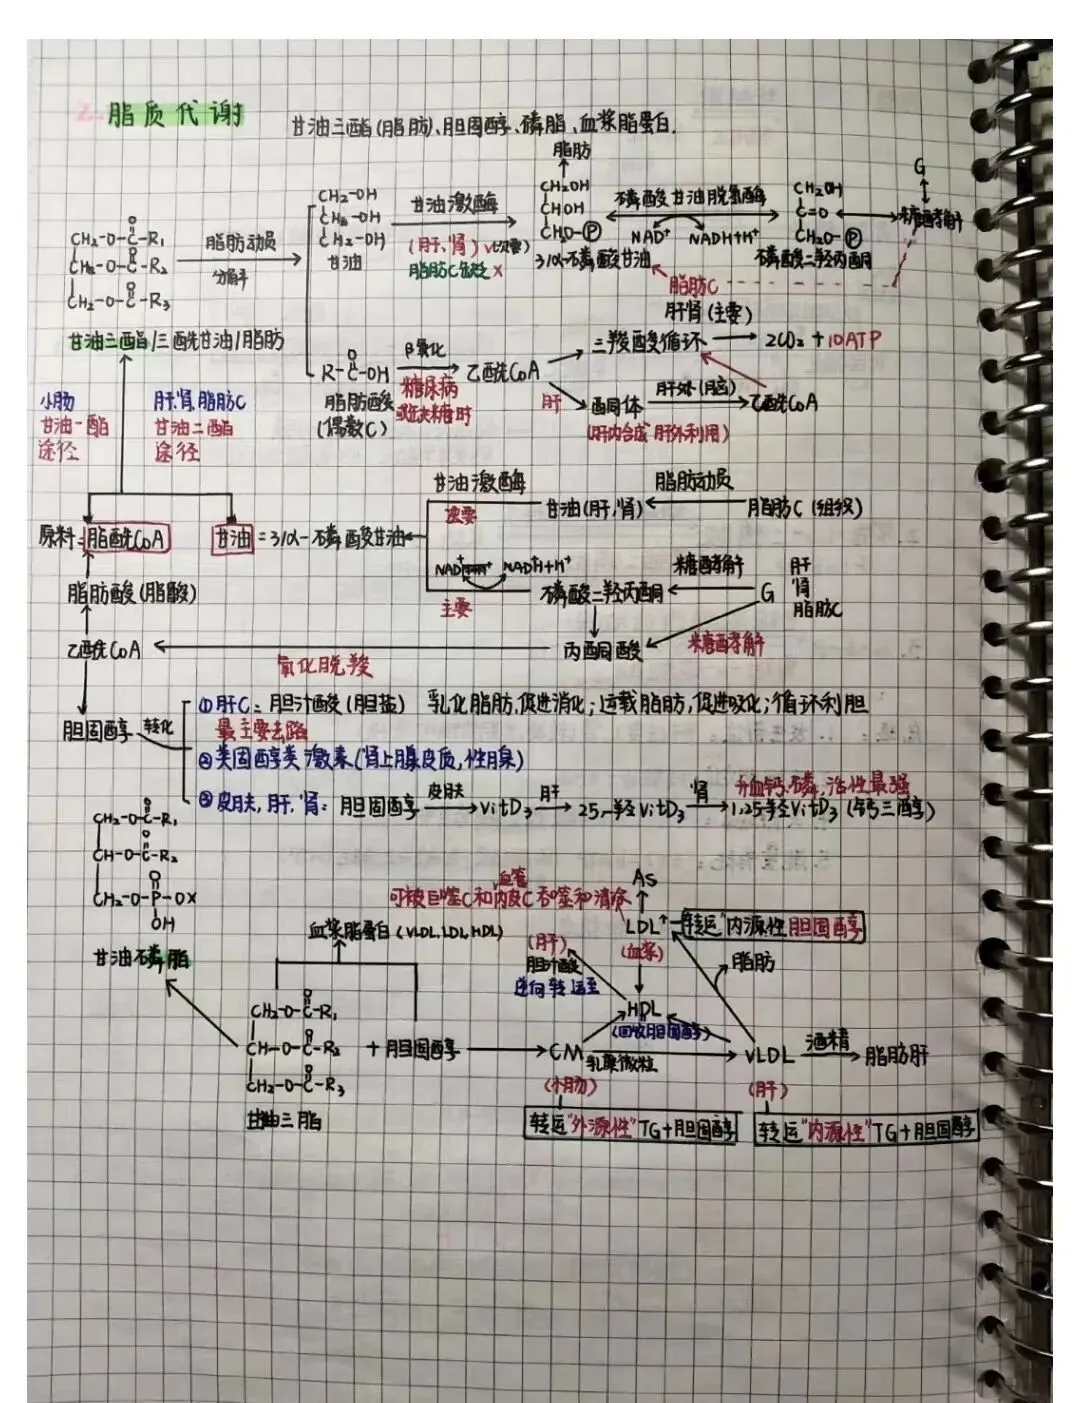 2. 脂质代谢
甘油三酯(脂肪)、胆固醇、磷脂、血浆脂蛋白.
脂肪
G
CH₂-O-C-R₁
O
CH₂-O-C-R₂
O
CH₂-O-C-R₃
O
甘油三酯/三酰甘油/脂肪
脂肪动员
分解
CH₂-OH
CH₂-OH
CH₂-OH
甘油
甘油激酶
(肝、肾)√(次要)
脂肪C缺乏×
CH₂OH
CHOH
CH₂O-Ⓟ
3/α-磷酸甘油
磷酸甘油脱氢酶
NAD⁺ NADH+H⁺
CH₂OH
C=O
CH₂O-Ⓟ
磷酸二羟丙酮
糖酵解
脂肪C
肝肾(主要)
O
R-C-OH
脂肪酸
(偶数C)
β氧化
糖尿病
或缺糖时
乙酰CoA
三羧酸循环
2CO₂+10ATP
肝
酮体
(肝内合成 肝外利用)
肝外(脑)
乙酰CoA
小肠
甘油一酯
途径
肝.肾.脂肪C
甘油二酯
途径
原料=脂酰CoA
甘油=3/α-磷酸甘油
甘油激酶
次要
甘油(肝,肾)
脂肪动员
脂肪C(组织)
NAD⁺ NADH+H⁺
主要
磷酸二羟丙酮
糖酵解
G
肝
肾
脂肪C
脂肪酸(脂酸)
乙酰CoA
氧化脱羧
丙酮酸
糖酵解
胆固醇
转化
①肝C: 胆汁酸(胆盐) 乳化脂肪,促进消化;运载脂肪,促进吸化;循环利胆
最主要去路
②类固醇类激素(肾上腺皮质,性腺)
③皮肤,肝,肾: 胆固醇 皮肤 VitD₃ 肝 25-羟VitD₃ 肾 1,25-羟VitD₃(钙三醇)
升血钙、磷,活性最强
O
CH₂-O-C-R₁
O
CH-O-C-R₂
O
CH₂-O-P-OX
OH
甘油磷脂
血浆脂蛋白(VLDL.LDL.HDL)
O
CH₂-O-C-R₁
O
CH-O-C-R₂
O
CH₂-O-C-R₃
甘油三脂
+胆固醇
血管
可被巨噬C和内皮C吞噬和清除
As
LDL↑
(血浆)
转运"内源性胆固醇
(肝)
胆汁酸
逆向转运至
HDL
(回收胆固醇)
脂肪
CM
乳糜微粒
(小肠)
VLDL
(肝)
酒精
脂肪肝
转运"外源性"TG+胆固醇
转运"内源性"TG+胆固醇